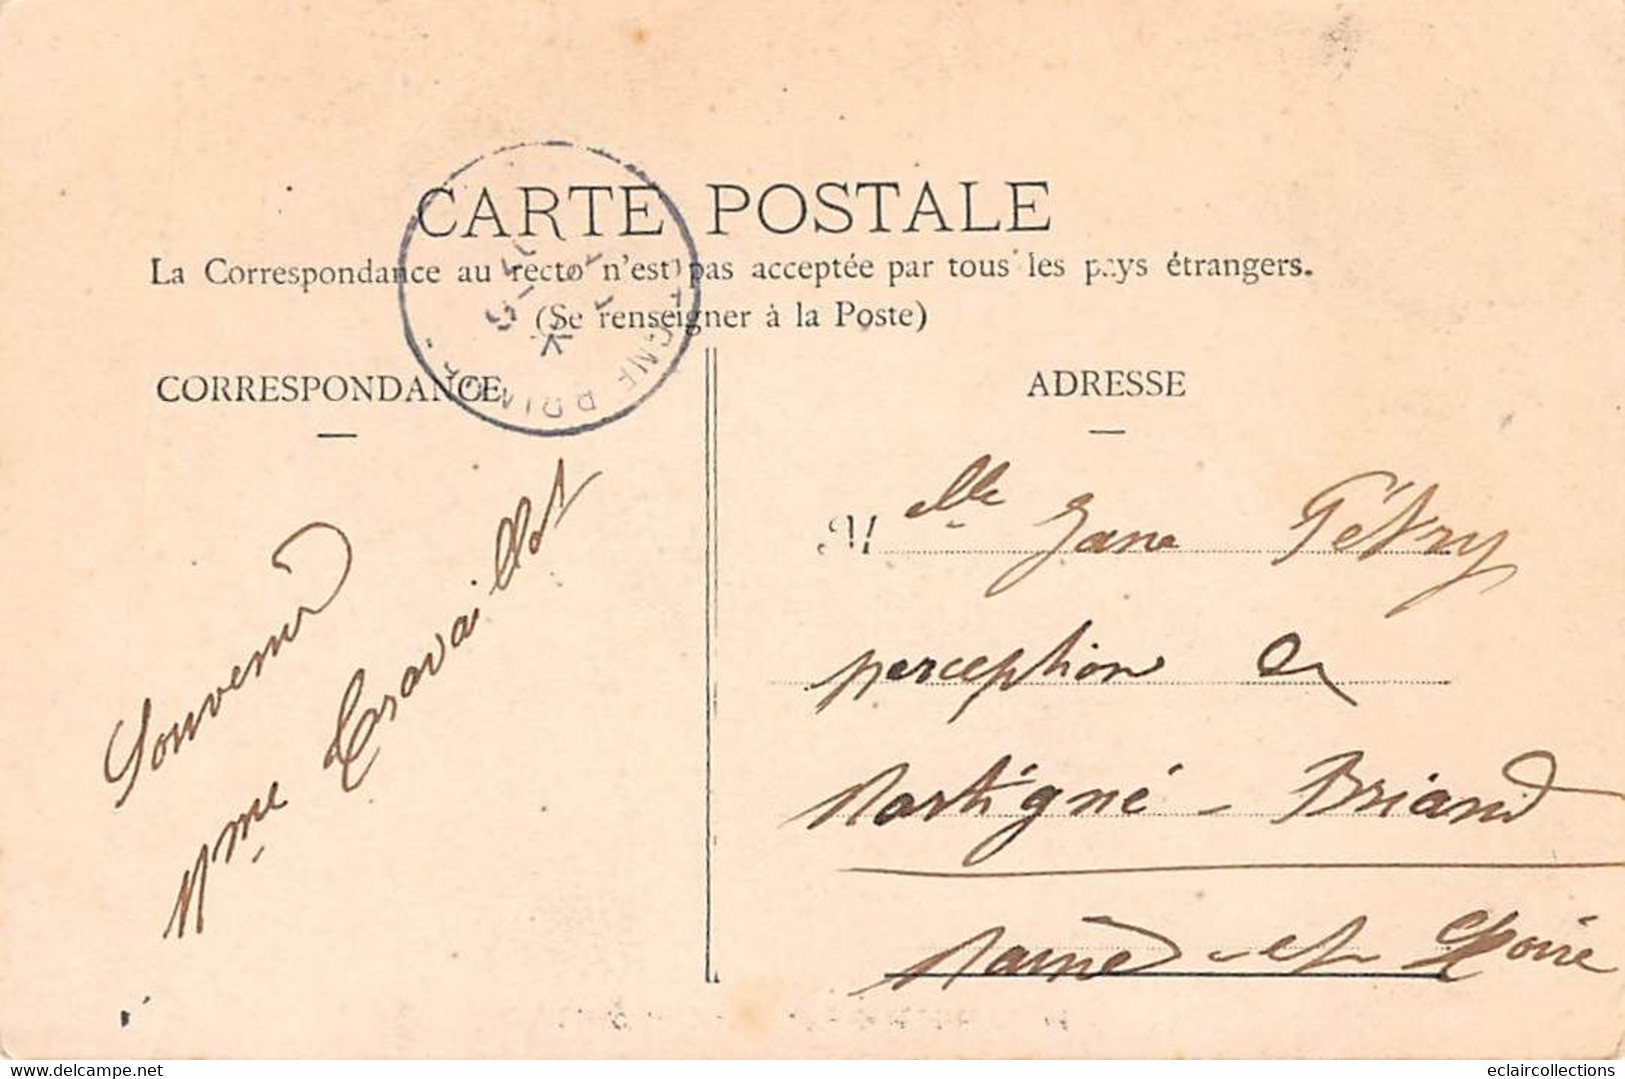 CARTE POSTALE
La Correspondance au recto n'est pas acceptée par tous les pays étrangers.
(Se renseigner à la Poste)
CORRESPONDANCE
ADRESSE
Souvenir
Mme Travaillot
Melle Jane Pétry
perception de
Martigné-Briand
Maine-et-Loire
www.delcampe.net
eclaircollections